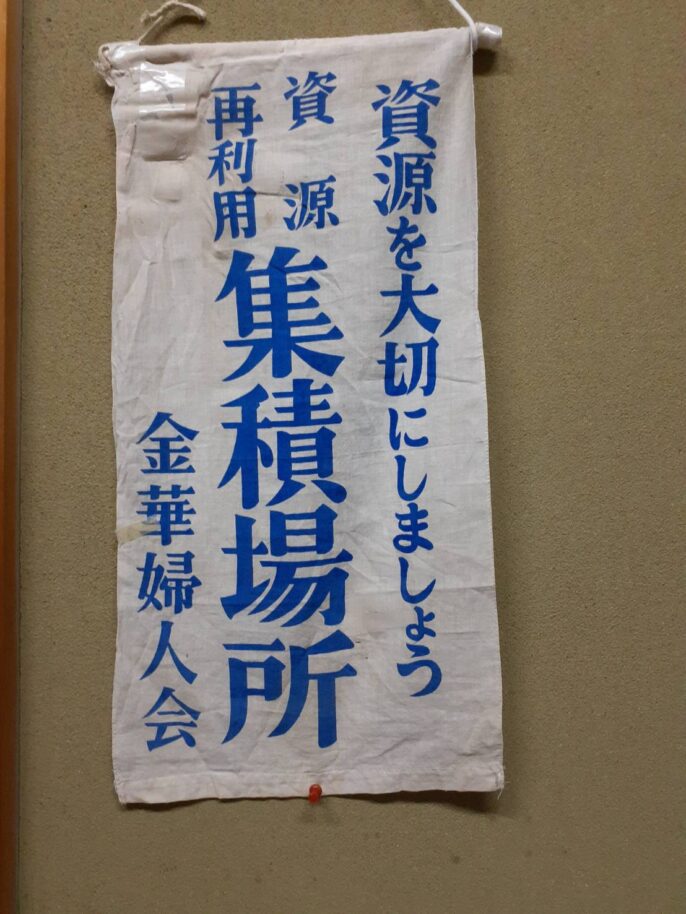 資源を大切にしましょう
資源
再利用
集積場所
金華婦人会